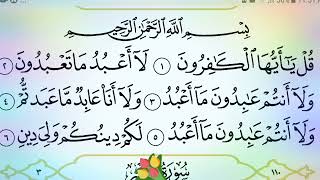 بِسْمِ ٱللَّهِ ٱلرَّحْمَٰنِ ٱلرَّحِيمِ
قُلْ يَٰٓأَيُّهَا ٱلْكَٰفِرُونَ ١ لَآ أَعْبُدُ مَا تَعْبُدُونَ ٢
وَلَآ أَنتُمْ عَٰبِدُونَ مَآ أَعْبُدُ ٣ وَلَآ أَنَا۠ عَابِدٌ مَّا عَبَدتُّمْ ٤
وَلَآ أَنتُمْ عَٰبِدُونَ مَآ أَعْبُدُ ٥ لَكُمْ دِينُكُمْ وَلِىَ دِينِ ٦
١١٠ سُورَةُ ٣